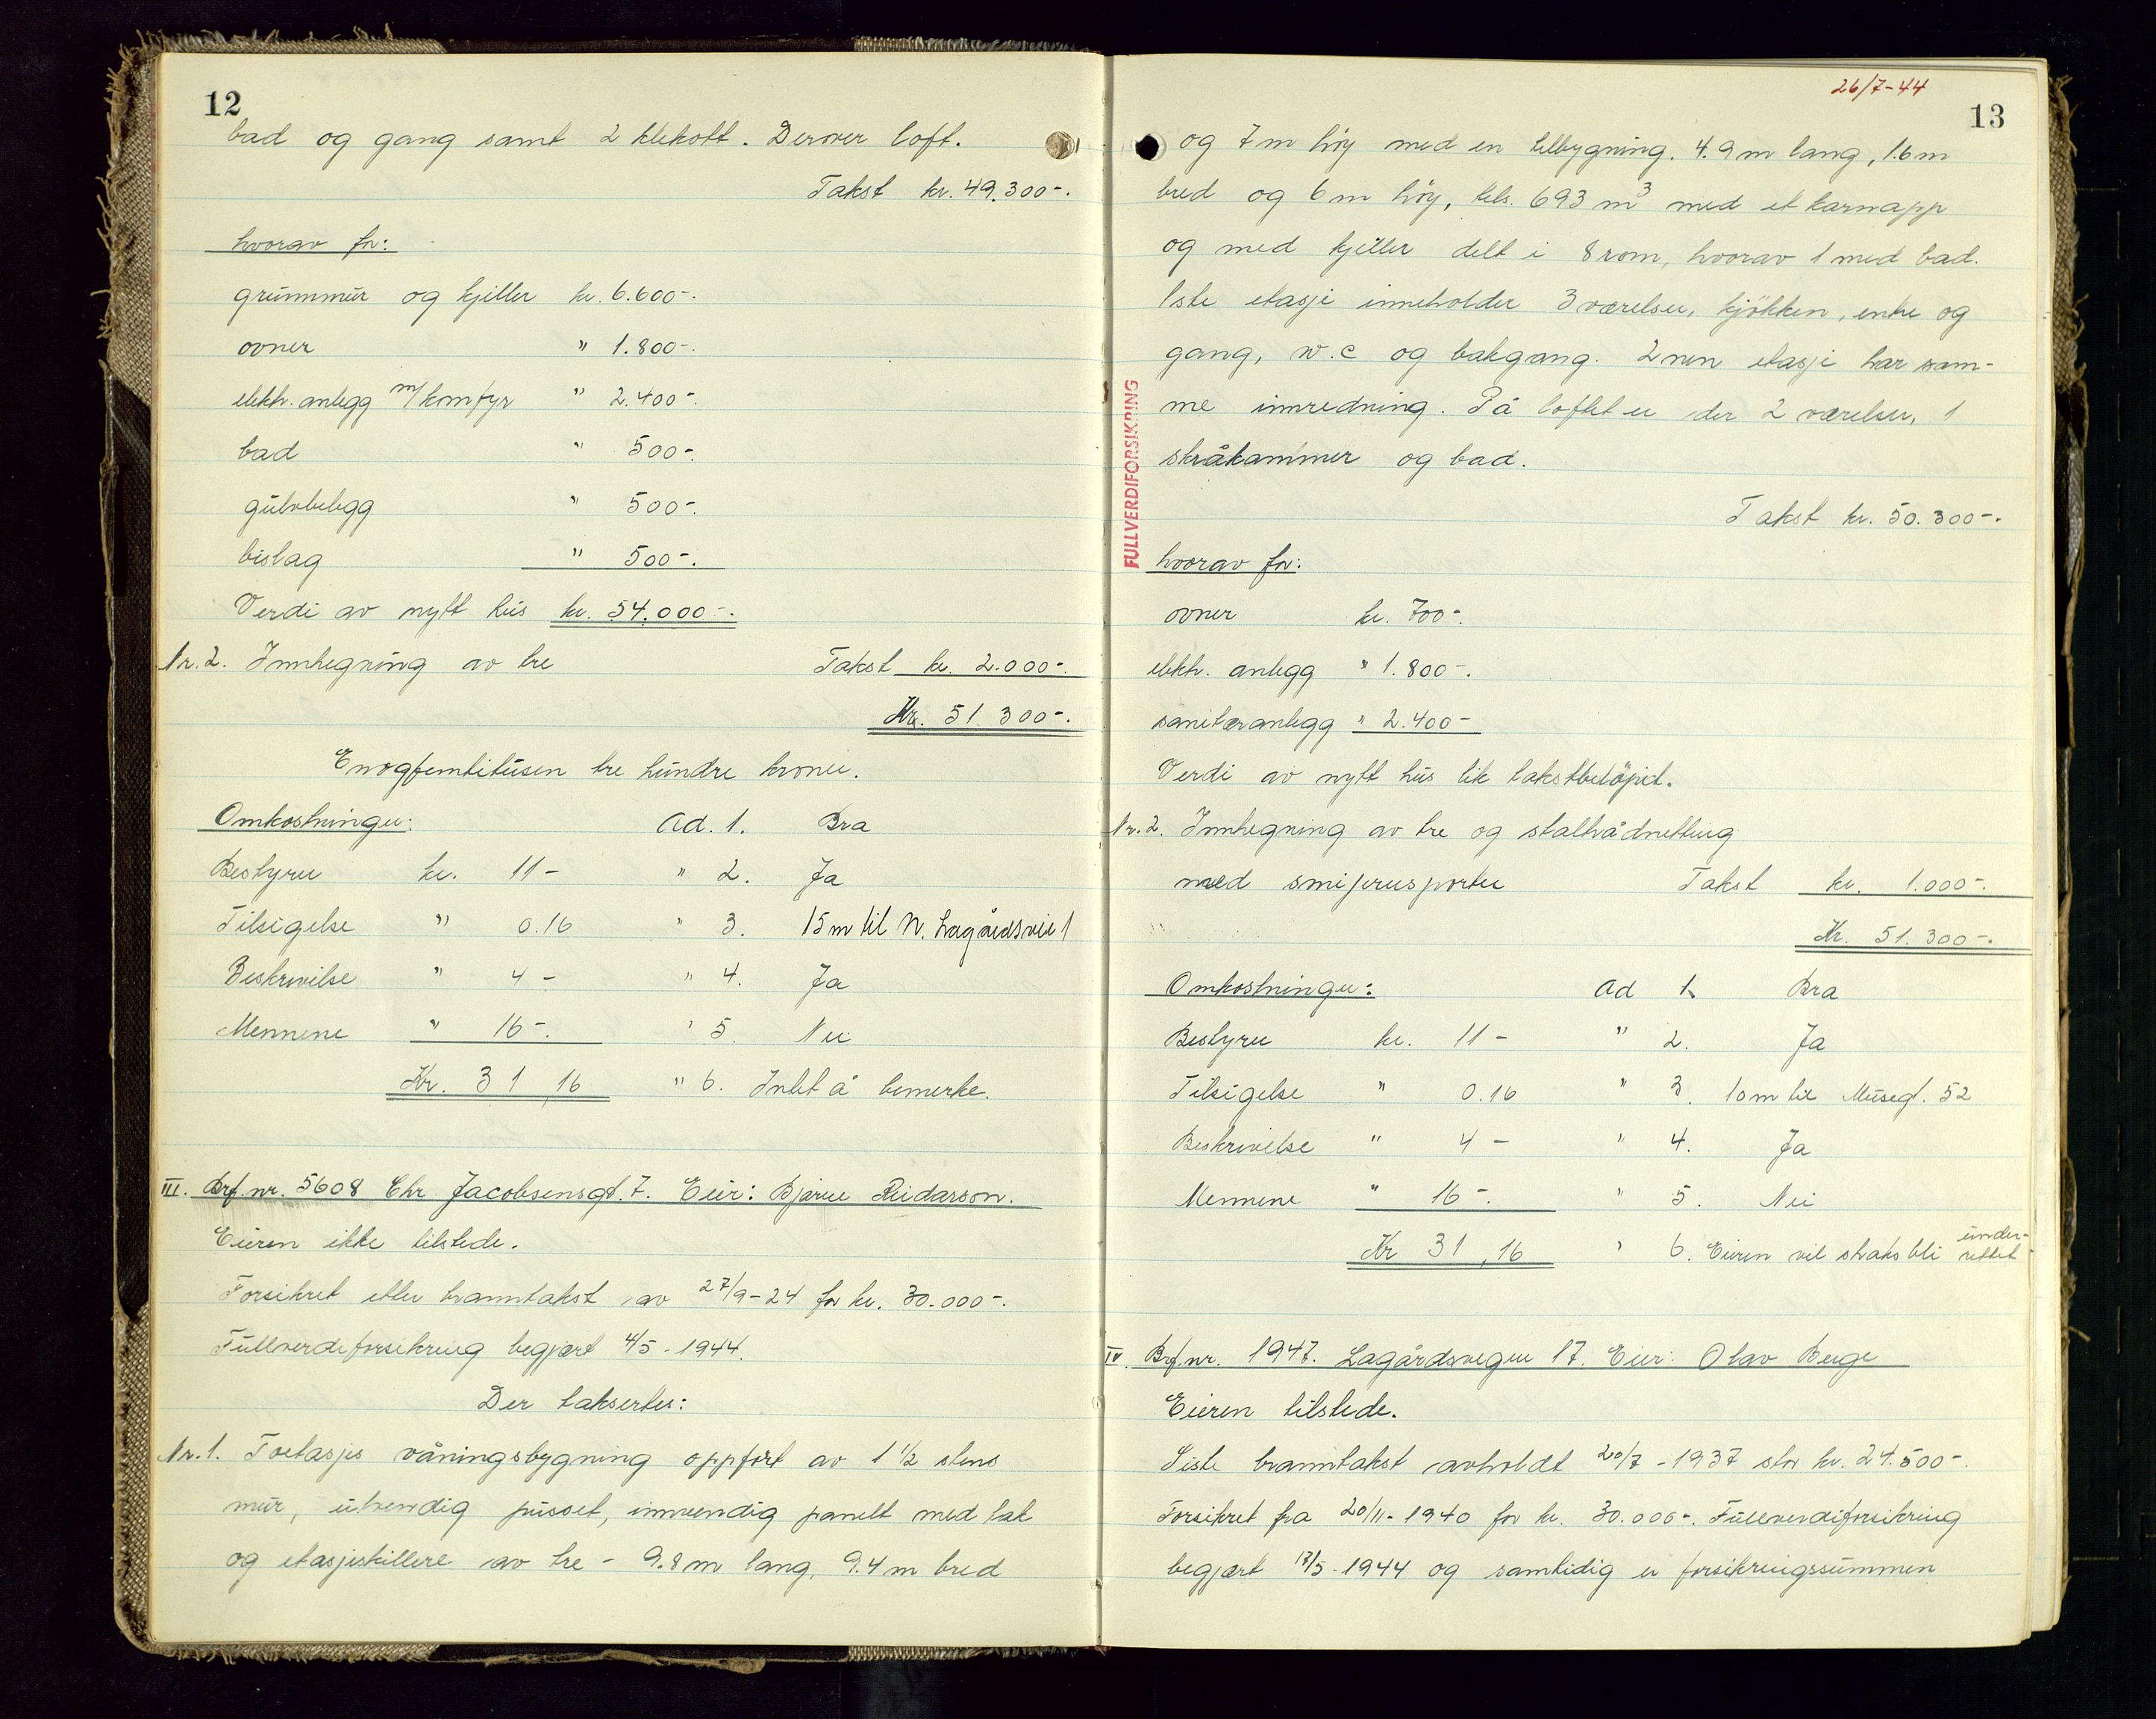 12
bad og gang samt 2 klekott. Derover loft.
Takst kr. 49.300-.
hvorav for:
grunnmur og kjeller kr. 6.600-.
ovner " 1.800-.
elektr. anlegg m/komfyr " 2.400-.
bad " 500-.
gulvbelegg " 500-.
bislag " 500-.
Verdi av nytt hus kr. 54.000-.
Nr. 2. Innhegning av tre Takst kr. 2.000-.
Kr. 51.300-.
Enogfemtitusen tre hundre kroner.
Omkostninger: Ad. 1. Bra
Bestyrer kr. 11- " 2. Ja
Tilsigelse " 0.16 " 3. 15 m til N. Lagårdsvei 1
Beskrivelse " 4- " 4. Ja
Mennene " 16-. " 5. Nei
Kr. 31,16 " 6. Intet å bemerke.
III. Brf. nr. 5608 Chr Jacobsensgt. 7. Eier: Bjarne Reidarson.
Eieren ikke tilstede.
Forsikret etter branntakst av 27/9-24 for kr. 30.000-.
Fullverdiforsikring begjært 4/5-1944.
Der taksertes:
Nr. 1. Toetasjes våningsbygning oppført av 1 1/2 stens
mur, utvendig pusset, innvendig panelt med tak
og etasjeskillere av tre - 9.8 m lang, 9.4 m bred
26/7-44
13
og 7 m høy med en tilbygning. 4.9 m lang, 1.6 m
bred og 6 m høy, tils. 693 m3 med et karnapp
og med kjeller delt i 8 rom, hvorav 1 med bad.
1ste etasje inneholder 3 værelser, kjökken, entre og
gang, w.c og bakgang. 2nen etasje har sam-
me innredning. På loftet er der 2 værelser, 1
skråkammer og bad.
FULLVERDIFORSIKRING
Takst kr. 50.300-.
hvorav for:
ovner kr. 700-.
elektr. anlegg " 1.800-.
sanitæranlegg " 2.400-
Verdi av nytt hus lik takstbelöpet.
Nr. 2. Innhegning av tre og ståltrådnetting
med smijernsporter Takst kr. 1.000-.
Kr. 51.300-.
Omkostninger: Ad 1. Bra
Bestyrer kr. 11- " 2. Ja
Tilsigelse " 0.16 " 3. 10 m til Musegt. 52
Beskrivelse " 4- " 4. Ja
Mennene " 16-. " 5. Nei
Kr 31,16 " 6. Eieren vil straks bli under-
rettet.
IV. Brf. nr. 1947. Lagårdsvegen 17. Eier: Olav Berge
Eieren tilstede.
Siste branntakst avholdt 20/7-1937 stor kr. 24.500-.
Forsikret fra 20/11-1940 for kr. 30.000-. Fullverdiforsikring
begjært 17/5-1944 og samtidig er forsikringssummen